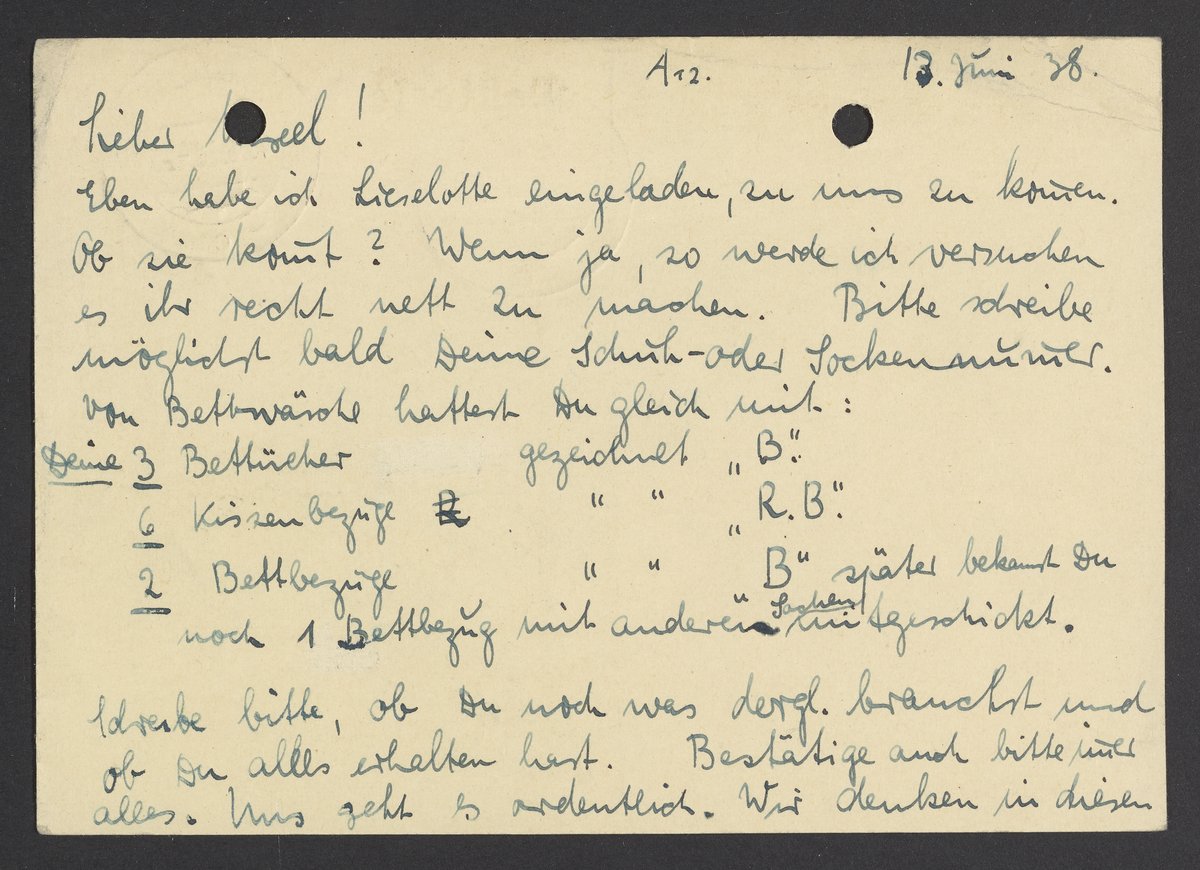 A 12. 13. Juni 38.
Lieber !
Eben habe ich Lieselotte eingeladen, zu uns zu kom̄en.
Ob sie kom̄t? Wenn ja, so werde ich versuchen
es ihr recht nett zu machen. Bitte schreibe
möglichst bald Deine Schuh- oder Sockennum̄er.
Von Bettwäsche hattest Du gleich mit:
Deine 3 Bettücher gezeichnet „B“.
6 Kissenbezüge " " „R.B“.
2 Bettbezüge " " B“ später bekamst Du
noch 1 Bettbezug mit anderen Sachen mitgeschickt.
Schreibe bitte, ob Du noch was dergl. brauchst und
ob Du alles erhalten hast. Bestätige auch bitte im̄er
alles. Uns geht es ordentlich. Wir denken in diesen